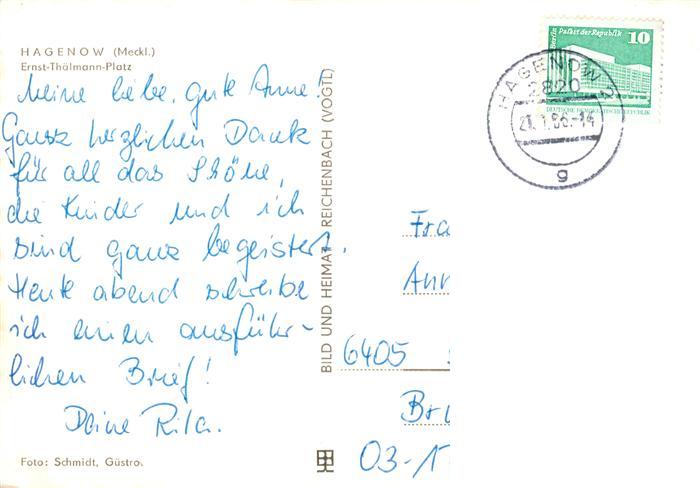 HAGENOW (Meckl.)
Ernst-Thälmann-Platz
Meine liebe, gute Anne!
Ganz herzlichen Dank
für all das Schöne,
die Kinder und ich
sind ganz begeistert.
Heute abend schreibe
ich einen ausführ-
lichen Brief!
Deine Rita.
Foto: Schmidt, Güstro.
BILD UND HEIMAT REICHENBACH (VOGTL)
Palast der Republik
10
DEUTSCHE DEMOKRATISCHE REPUBLIK
HAGENOW 2
2820
-14
g
6405